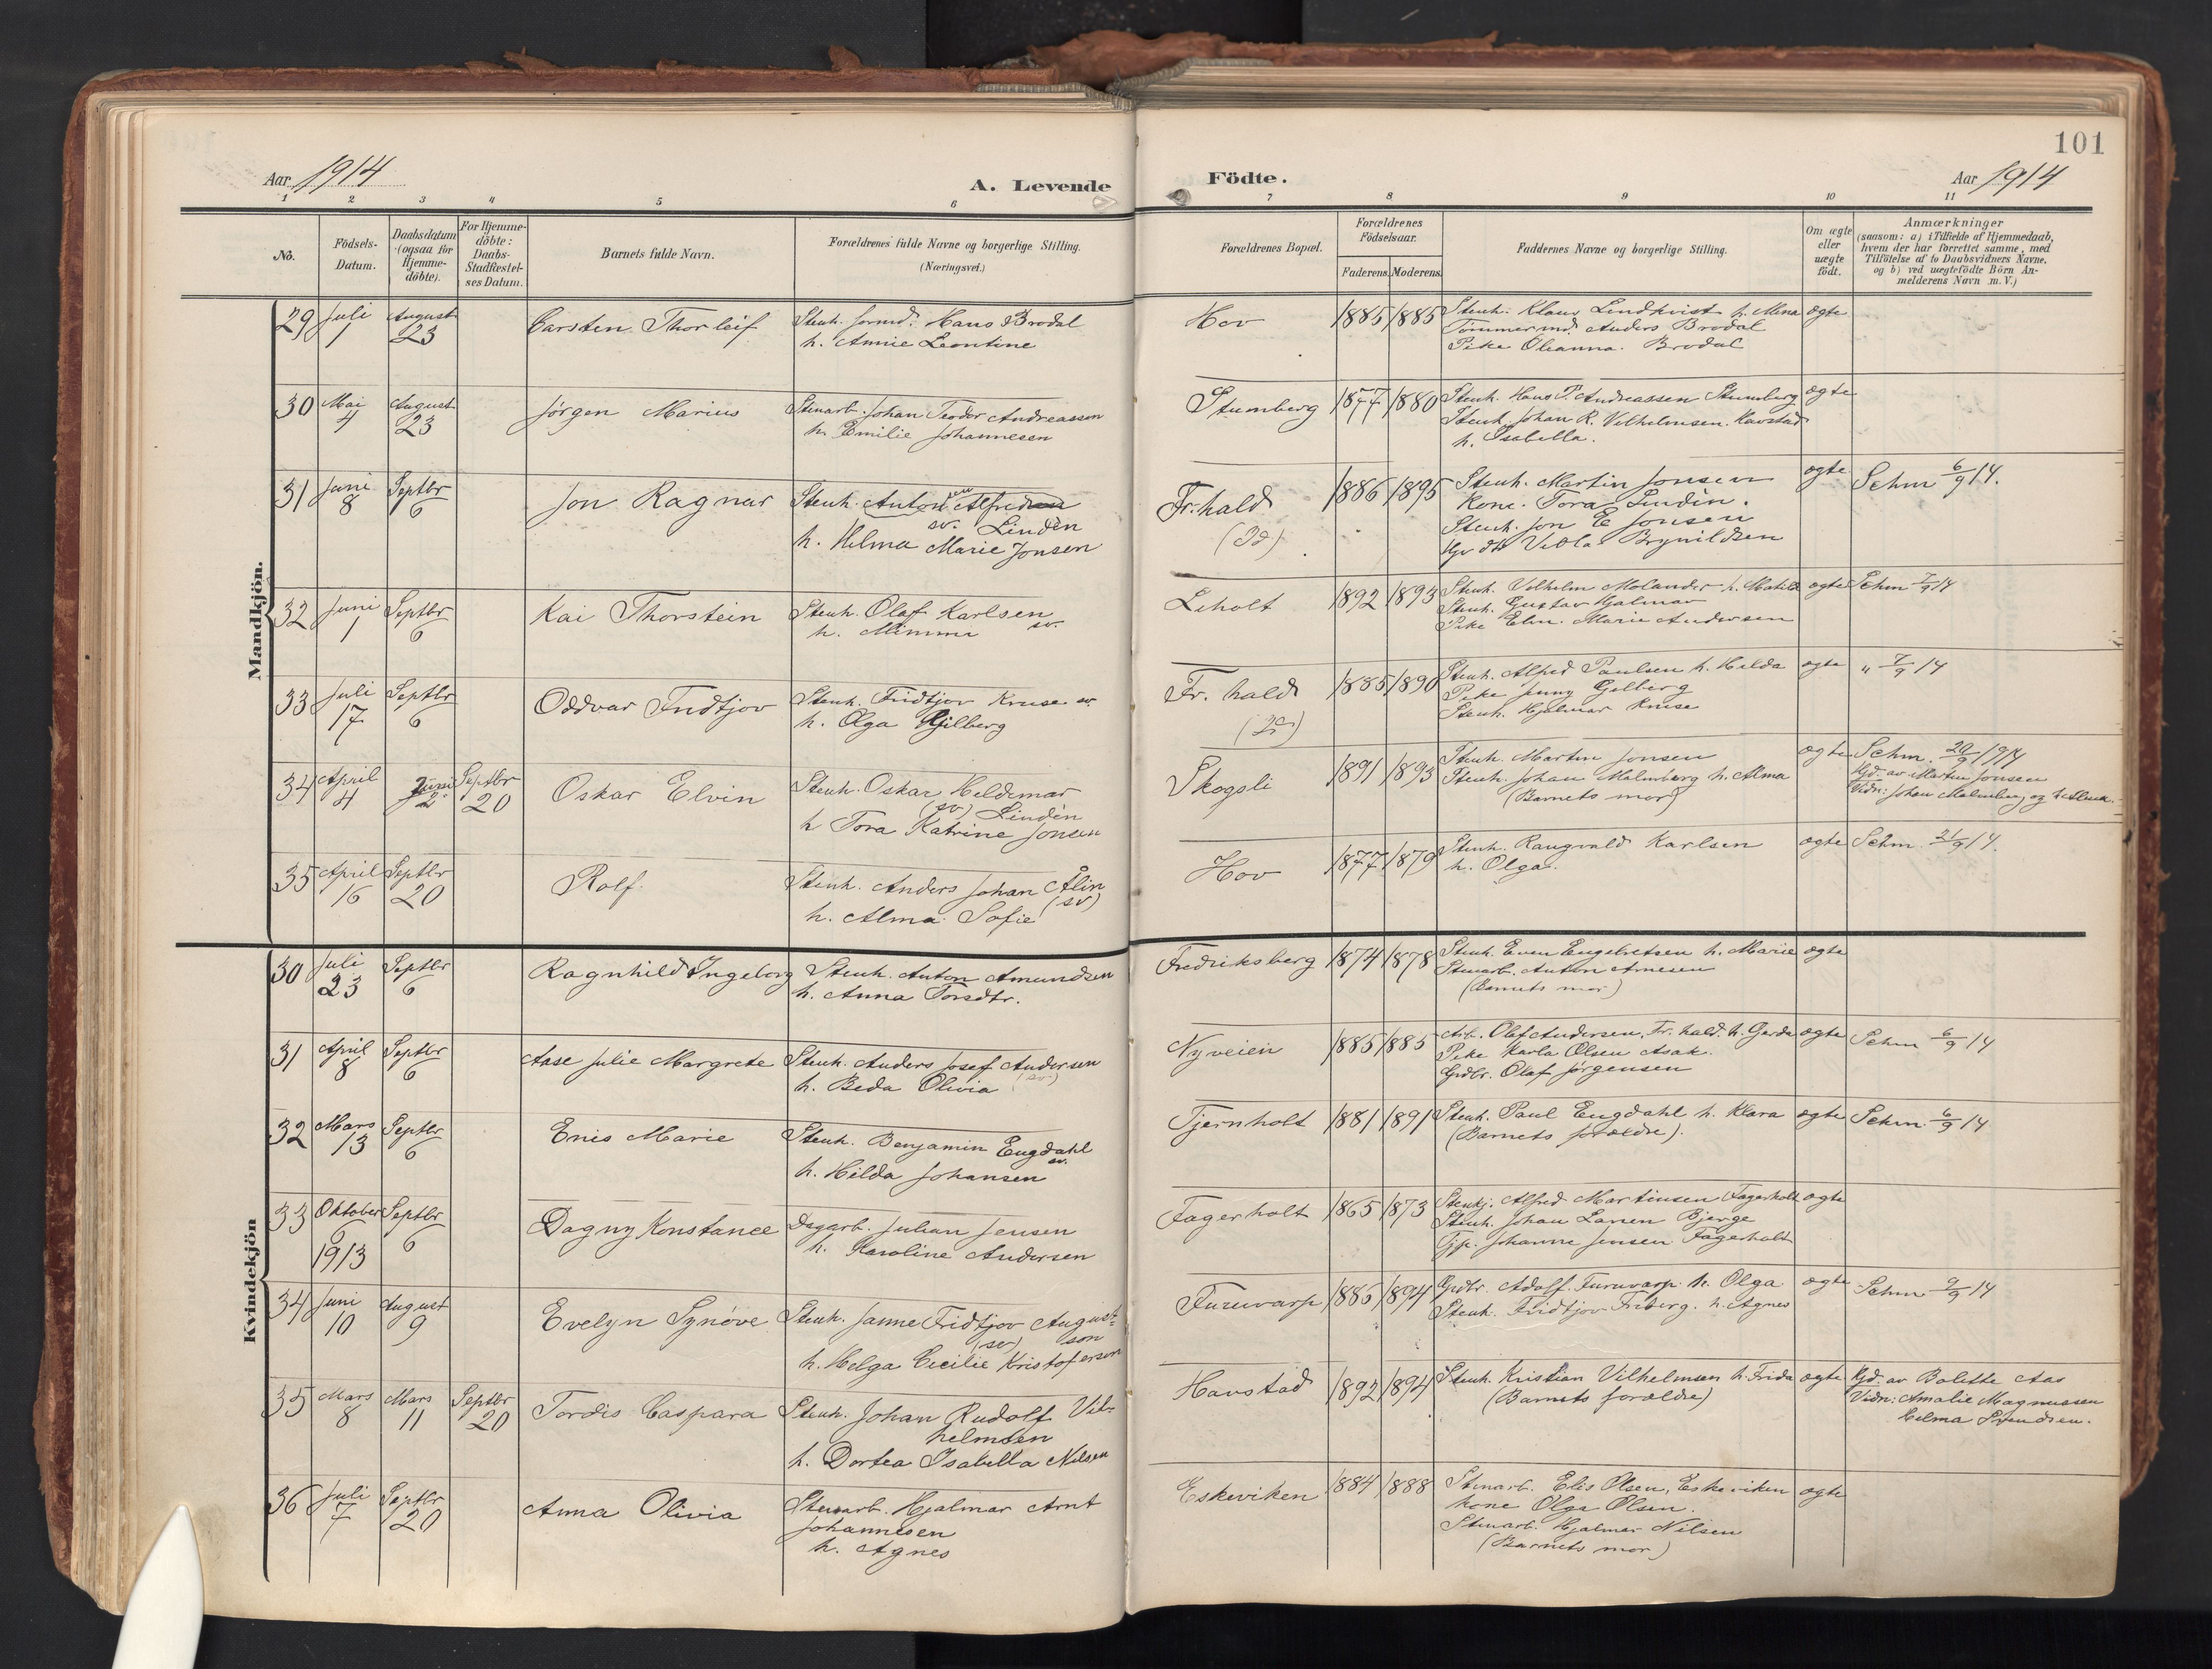 101
Aar 1914
A. Levende
Födte.
Aar 1914
1 2 3 4 5 6 7 8 9 10 11
No.
Födsels-Datum.
Daabsdatum (ogsaa for Hjemme-döbte).
For Hjemme-döbte: Daabs-Stadfæstel-ses Datum.
Barnets fulde Navn.
Forældrenes fulde Navne og borgerlige Stilling.
(Næringsvei.)
Forældrenes Bopæl.
Forældrenes Födselsaar.
Faderens. Moderens.
Faddernes Navne og borgerlige Stilling.
Om ægte eller uægte födt.
Anmærkninger
(saasom: a) i Tilfælde af Hjemmedaab,
hvem der har forrettet samme, med
Tilföielse af to Daabsvidners Navne,
og b) ved uægtefödte Börn An-
melderens Navn m. V.)
Mandkjön.
29 Juli 1 August 23 Carsten Thorleif Stenh. formd. Hans Brødal
h. Annie Leontine
Hov 1885 1885 Stenh. Klaus Lindkvist h. Mina ægte
Tømmermd. Anders Brødal
Pike Oleanna Brødal
30 Mai 4 August 23 Jørgen Marius Stenarb. Johan Teodor Andreassen
h. Emilie Johannesen
Stumberg 1877 1880 Stenh. Hans P. Andreassen Stumberg ægte
Stenh. Johan R. Vilhelmsen. Havstad
h. Isabella.
31 Juni 8 Septbr 6 Jon Ragnar Stenh. Anton Alfred
sv. Lindèn
h. Hilma Marie Jonsen
Fr.hald
(Id)
1886 1895 Stenh. Martin Jonsen ægte Schm 6/9 14.
Kone. Tora Lindèn.
Stenh. Jon E Jonsen
Brynildsen
32 Juni 1 Septbr 6 Kai Thorstein Stenh. Olaf Karlsen
h. Mimmi sv.
Liholt 1892 1893 Stenh. Vilhelm Molander h. Matild ægte Schm 7/9 14
Stenh. Gustav Hjalmar
Pike Elin Marie Andersen
33 Juli 17 Septbr 6 Oddvar Fridtjov Stenh. Fridtjov Kruse sv.
h. Olga Gjilberg
Fr. hald
(Id)
1885 1890 Stenh. Alfred Paulsen h. Hilda ægte " 7/9 14
Pike Jenny Gjilberg
Stenh. Hjalmar Kruse
34 April 4 Juni 2 Septbr 20 Oskar Elvin Stenh. Oskar Heldemar
(sv) Lindèn
h Tora Katrine Jonsen
Skogsli 1891 1893 Stenh. Martin Jonsen ægte Schm. 20/9 1914
Stenh. Johan Malmberg h. Alma
(Barnets mor)
Hjd. av Martin Jonsen
Vidn: Johan Malmberg og h. Alma.
35 April 16 Septbr 20 Rolf. Stenh. Anders Johan Ålin
(sv)
h. Alma Sofie
Hov 1877 1879 Stenh. Rangvald Karlsen ægte Schm. 21/9 14.
h. Olga.
Kvindekjön
30 Juli 23 Septbr 6 Ragnhild Ingeborg Stenh. Anton Amundsen
h. Anna Torsdtr.
Fredriksberg 1874 1878 Stenh. Even Engebretsen h. Marie ægte
Stenarb. Anton Arnesen
(Barnets mor)
31 April 8 Septbr 6 Aase Julie Margrete Stenh. Anders Josef Andersen
(sv)
h. Beda Olivia
Nyveien 1885 1885 Arb. Olaf Andersen, Fr. hald. h. Gerda ægte Schm 6/9 14
Pike Karla Olsen Asak.
Grdbr. Olaf Jørgensen
32 Mars 13 Septbr 6 Enis Marie Stenh. Benjamin Engdahl
sv.
h. Hilda Johansen
Tjernholt 1881 1891 Stenh. Paul Engdahl h. Klara ægte Schm. 6/9 14
(Barnets forældre).
33 Oktober 6 1913 Septbr 6 Dagny Konstance Dagarb. Julian Jensen
h. Karoline Andersen
Fagerholt 1865 1873 Stenkj. Alfred Martinsen Fagerholt ægte
Stenh. Johan Larsen Bjerge
Tjp. Johanne Jensen Fagerholt
34 Juni 10 August 9 Evelyn Synøve Stenh. Janne Fridtjov August-
(sv) son
h. Helga Cecilie Kristoferson
Furuvarp 1885 1894 Grdbr. Adolf Furuvarp h. Olga ægte Schm 9/9 14
Stenh. Fridtjov Friberg. h. Agnes
35 Mars 8 Mars 11 Septbr 20 Tordis Caspara Stenh. Johan Rudolf Vil-
helmsen
h. Dortea Isabella Nilsen
Havstad 1892 1894 Stenh. Kristian Vilhelmsen h. Frida ægte Hjd. av Bolette Aas
(Barnets forældre)
Vidn: Amalie Magnussen
Helma Svendsen.
36 Juli 7 Septbr 20 Anna Olivia Stenarb. Hjalmar Arnt
Johannesen
h. Agnes
Eskeviken 1884 1888 Stenarb. Elis Olsen, Eskeviken ægte
kone Olga Olsen.
Stenarb. Hjalmar Nilsen
(Barnets mor)